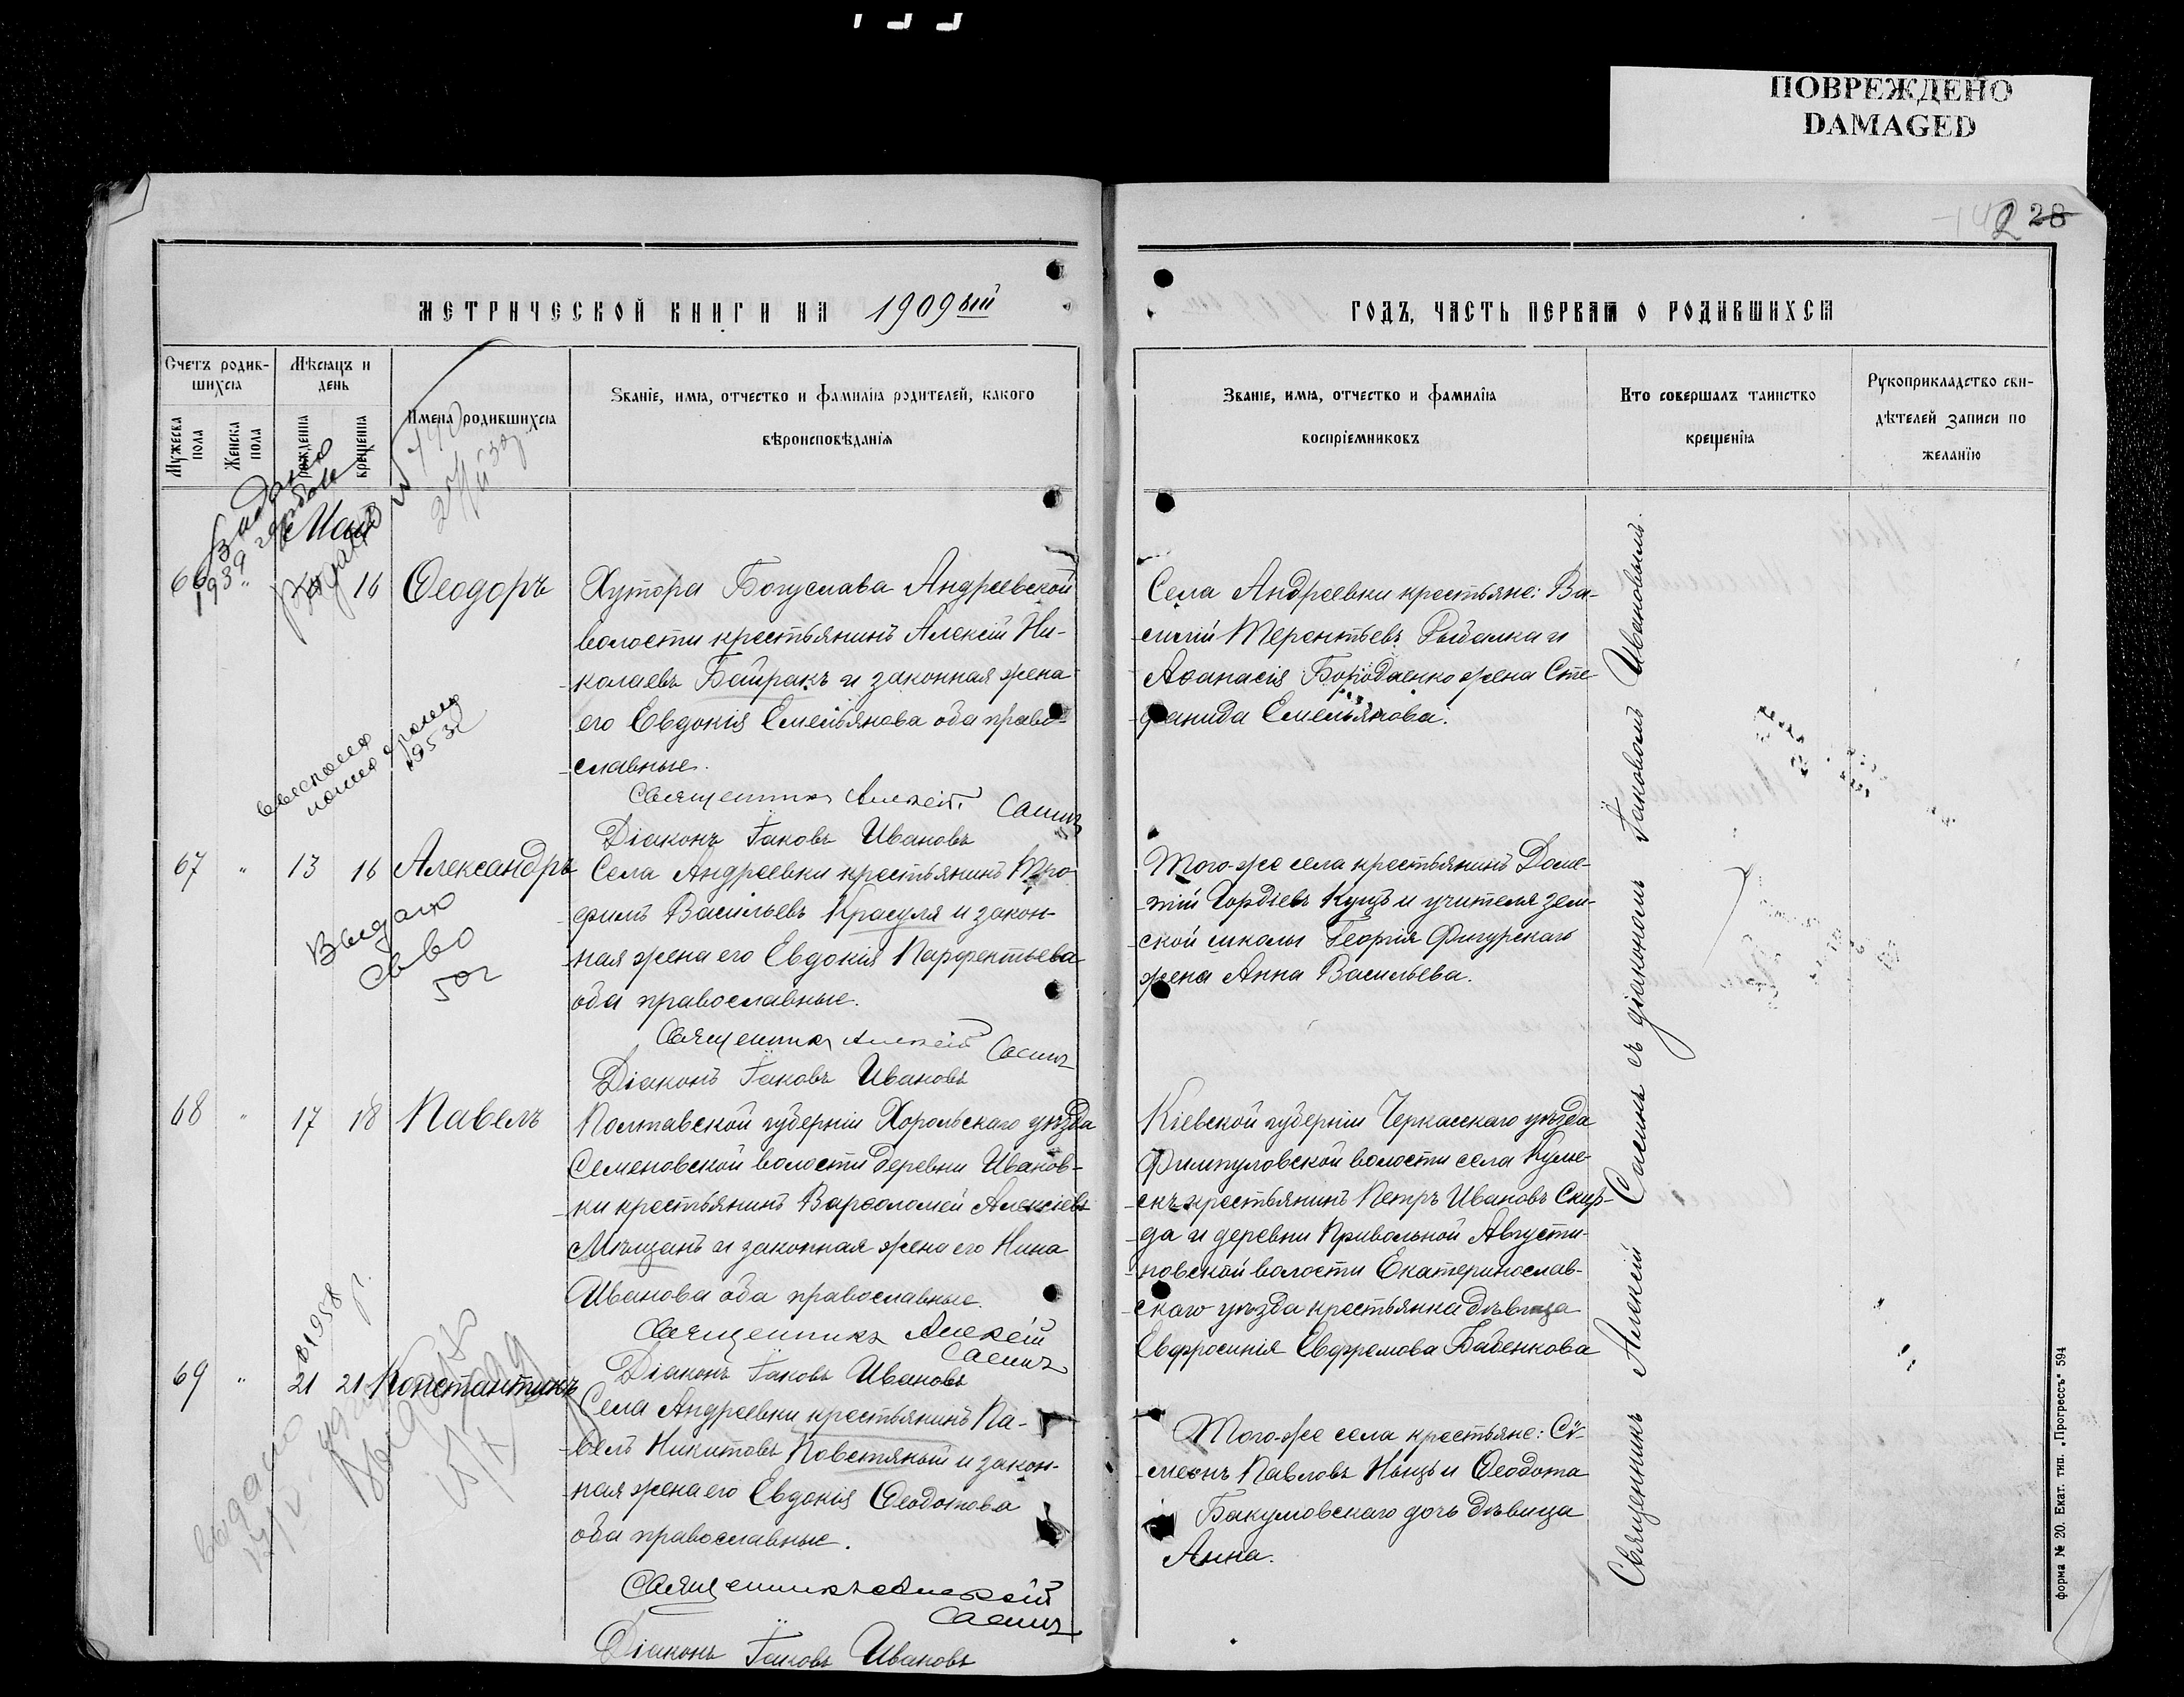 ПОВРЕЖДЕНО
DAMAGED
28
МЕТРИЧЕСКОЙ КНИГИ НА 1909ый
ГОДЪ, ЧАСТЬ ПЕРВАЯ О РОДИВШИХСЯ
Счетъ родив-
шихся
Мужеска
пола
Женска
пола
Мѣсяцъ и
день
рожденія
крещенія
Имена родившихся
Званіе, имя, отчество и фамилія родителей, какого
вѣроисповѣданія
Званіе, имя, отчество и фамилія
воспріемниковъ
Кто совершалъ таинство
крещенія
Рукоприкладство сви-
дѣтелей записи по
желанію
Май
1939
66 " 16 Ѳеодоръ
Хутора Богуслава Андреевской
волости крестьянинъ Алексій Ни-
колаевъ Байракъ и законная жена
его Евдокія Емельянова оба право-
славные.
Священникъ Алексій Саенъ
Діаконъ Іаковъ Ивановъ
Села Андреевки крестьяне: Ва-
силій Терентьевъ Рыбалка и
Аѳанасія Бородаенко жена Сте-
фанида Емельянова.
67 " 13 16 Александръ
Выдано
св-во
50г
Села Андреевки крестьянинъ Тро-
фимъ Васильевъ Красуля и закон-
ная жена его Евдокія Парфентьева
оба православные.
Священникъ Алексій Саенъ
Діаконъ Іаковъ Ивановъ
Того-же села крестьянинъ Доме-
тій Гордіевъ Куцъ и учителя зем-
ской школы Георгія Фигурскаго
жена Анна Васильева.
68 " 17 18 Павелъ
Полтавской губерніи Хорольскаго уѣзда
Семеновской волости деревни Иванов-
ки крестьянинъ Варѳоломей Алексіевъ
Мѣщанъ и законная жена его Нина
Иванова оба православные.
Священникъ Алексій
Саенъ
Діаконъ Іаковъ Ивановъ
Кіевской губерніи Черкасскаго уѣзда
волости села
крестьянинъ Петръ Ивановъ Скир-
да и деревни Привольной Августи-
новской волости Екатеринослав-
скаго уѣзда крестьянка дѣвица
Евфросинія Ефремова Бабенкова
69 " 21 21 Константинъ
Выдано
выдано
Села Андреевки крестьянинъ Па-
велъ Никитовъ Повстяный и закон-
ная жена его Евдокія
оба православные.
Священникъ Алексій
Саенъ
Діаконъ Іаковъ Ивановъ
Того-же села крестьяне: Сѵ-
меонъ Павловъ и Ѳеодота
Бакумовскаго дочь дѣвица
Анна.
Священникъ Алексій Саенъ съ діакономъ Іаковомъ Ивановымъ.
форма № 20. Екат. тип. „Прогрессъ" 594